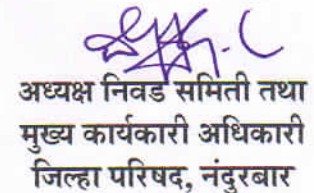 अध्यक्ष निवड समिती तथा
मुख्य कार्यकारी अधिकारी
जिल्हा परिषद, नंदुरबार